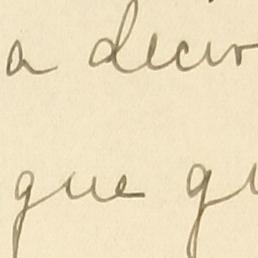 a decir
que qu